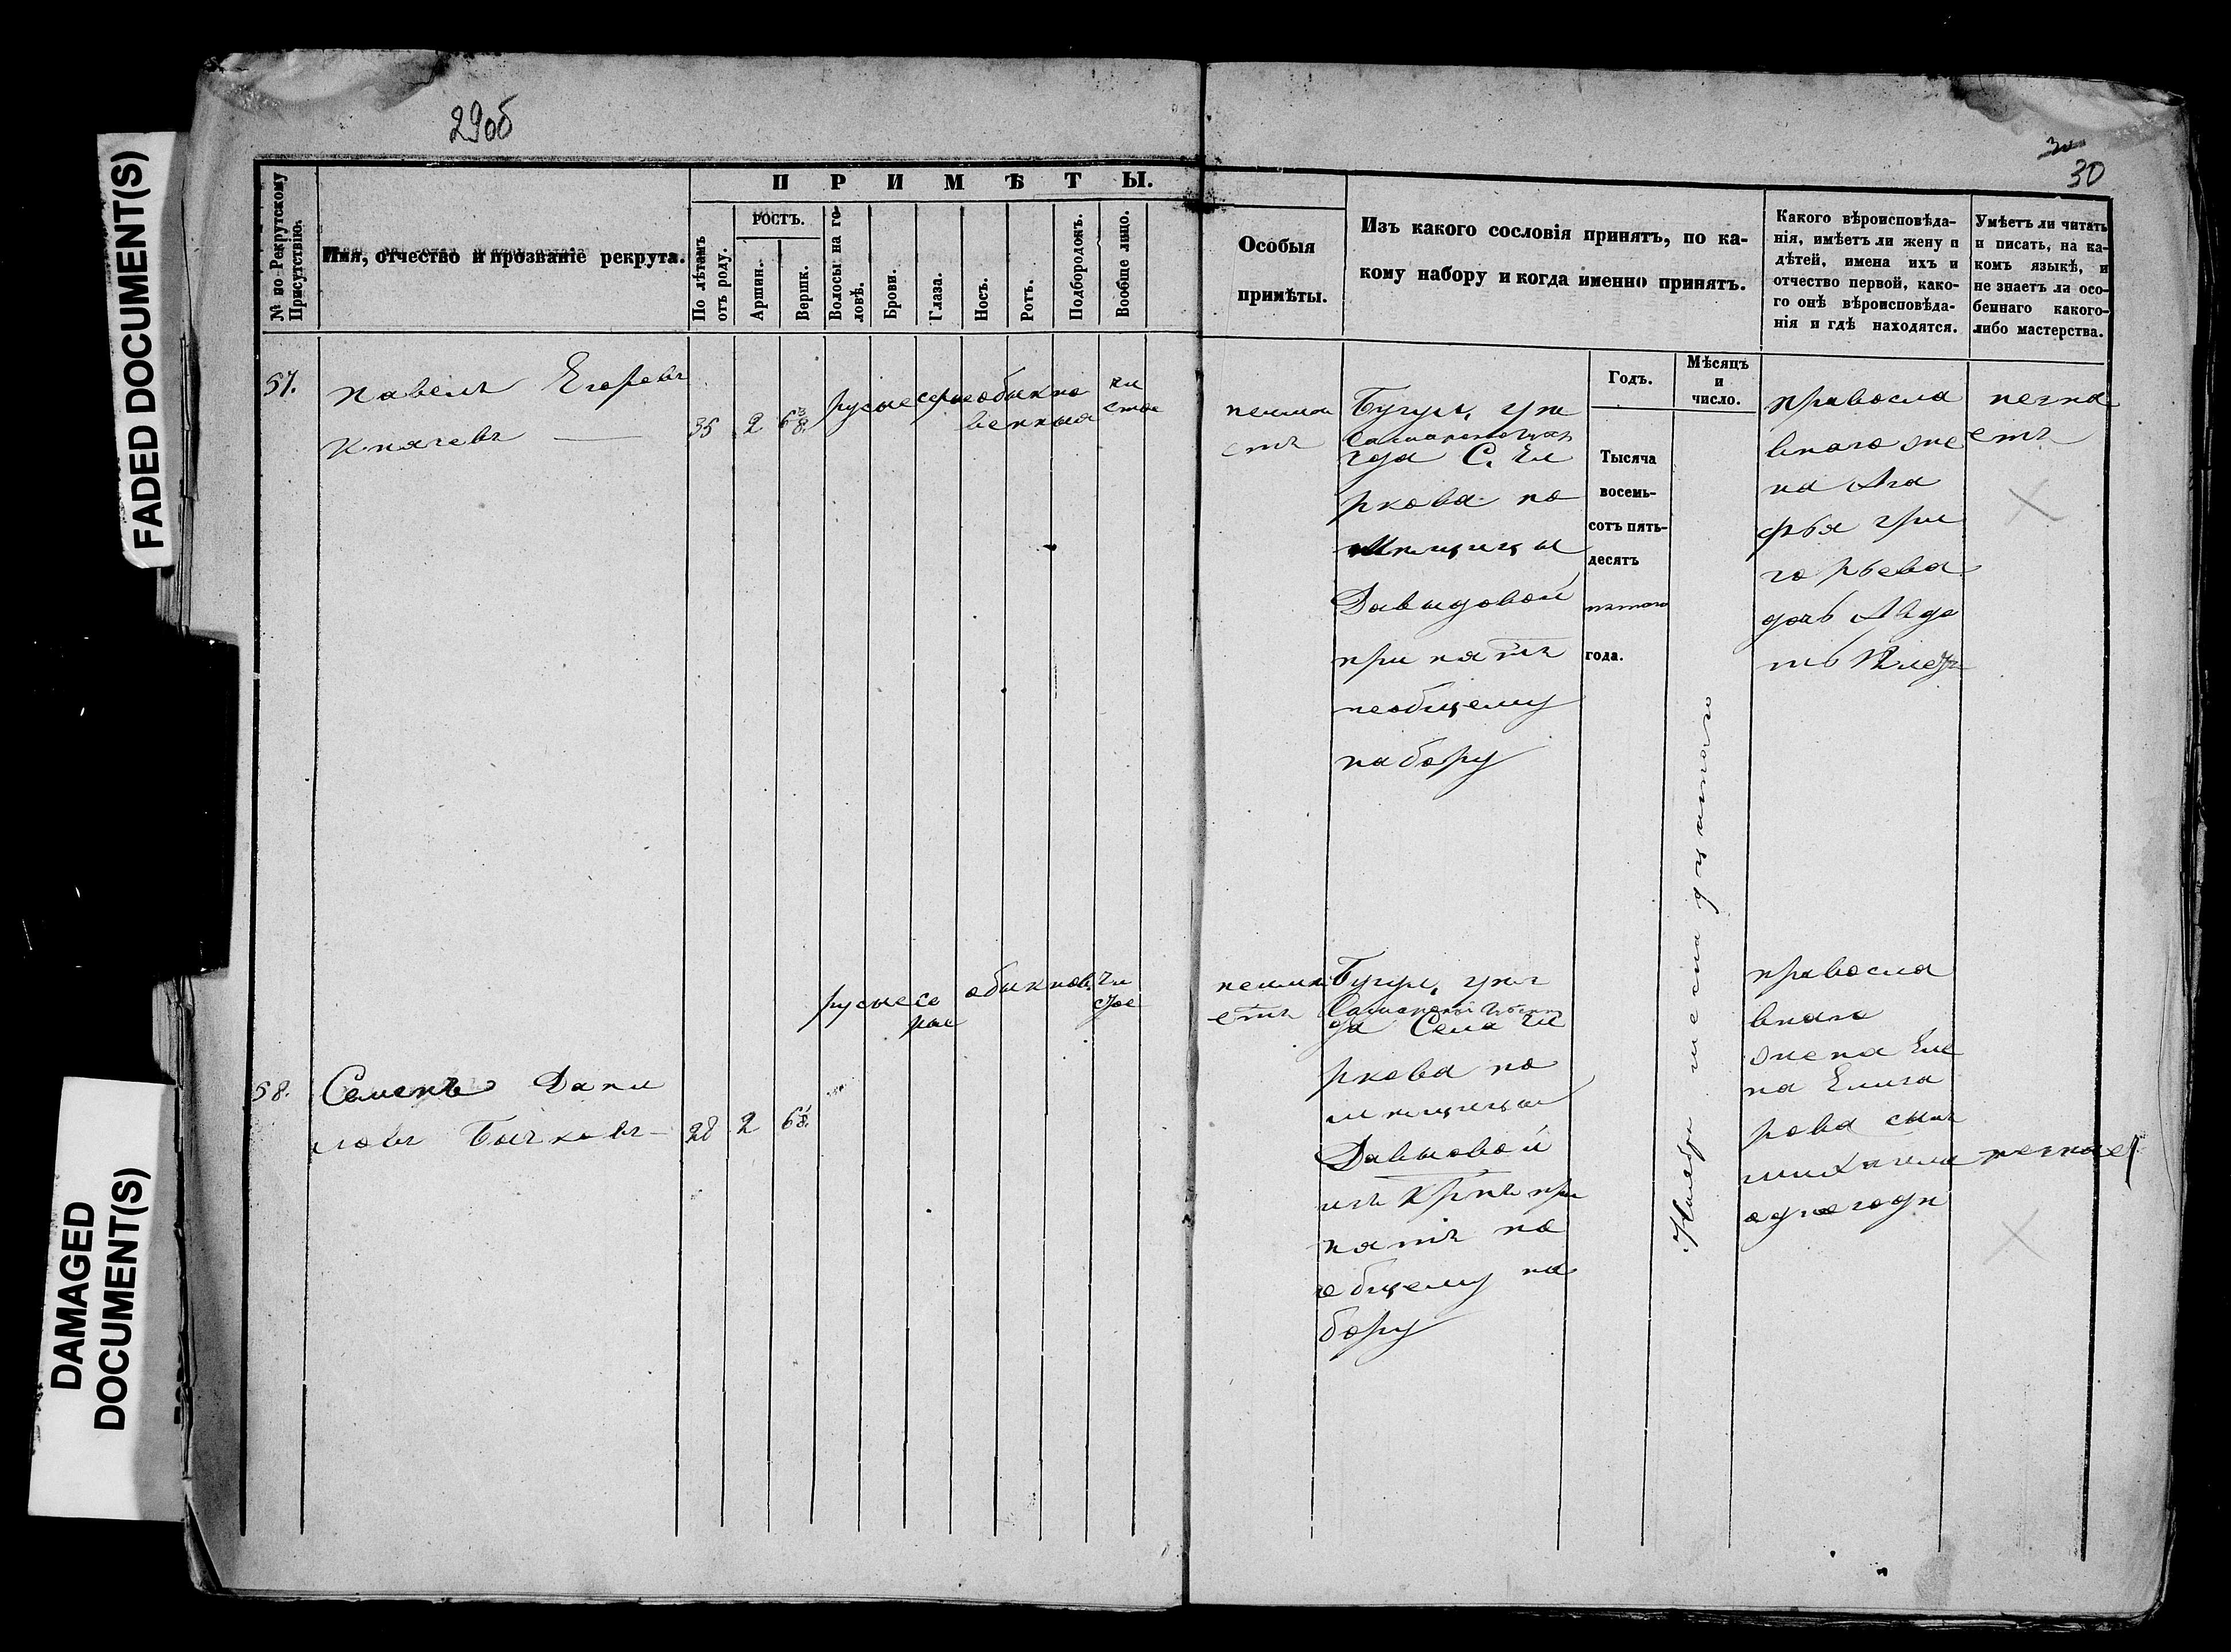 29об
30
30
FADED DOCUMENT(S)
DAMAGED
DOCUMENT(S)
№ по Рекрутскому Присутствію.
Имя, отчество и прозваніе рекрута.
ПРИМѢТЫ.
По лѣтамъ отъ роду.
РОСТЪ.
Аршин.
Вершк.
Волосы на го-ловѣ.
Брови.
Глаза.
Носъ.
Ротъ.
Подбородокъ.
Вообще лицо.
Особыя
примѣты.
Изъ какого сословія принятъ, по ка-
кому набору и когда именно принятъ.
Годъ.
Мѣсяцъ
и
число.
Какого вѣроисповѣда-
нія, имѣетъ ли жену и
дѣтей, имена ихъ и
отчество первой, како-
го онѣ вѣроисповѣда-
нія и гдѣ находятся.
Умѣетъ ли читать
и писать, на ка-
комъ языкѣ, и
не знаетъ ли осо-
беннаго какого-
либо мастерства.
57.
Павелъ Егоровъ
Князевъ
35 2 6 3/8
русые
серые
обыкно
венныя
чи
стое
неиме
етъ
Бугул. уѣз
Самарской губ
да С. Чи
ркова по
мѣщицы
Давыдовой
принятъ
пообщему
набору
Тысяча
восемь-
сотъ пять-
десятъ
пятаго
года.
Ноября шеснадцатаго
правосла
внаго же
на Ага
фья Гри
горьева
дочь Авдо
тья
незна
етъ
58.
Семенъ Дани
ловъ Бычковъ
28 2 6 1/8
русые
се
рые
обыкнов.
чи
стое
неиме
етъ
Бугул. уѣз
Самарской губерн
да Села Чи
ркова по
мѣщицы
Давыовой
изъ крпнъ при
нятъ по
общему на
бору
правосла
внаго
жена Еле
на Елиза
рова сынъ
михайла
одногодн
незнает